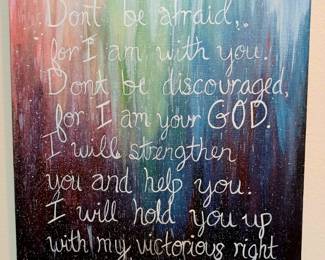 Dont be afraid,
for I am with you.
Dont be discouraged,
for I am your GOD.
I will strengthen
you and help you.
I will hold you up
with my victorious right